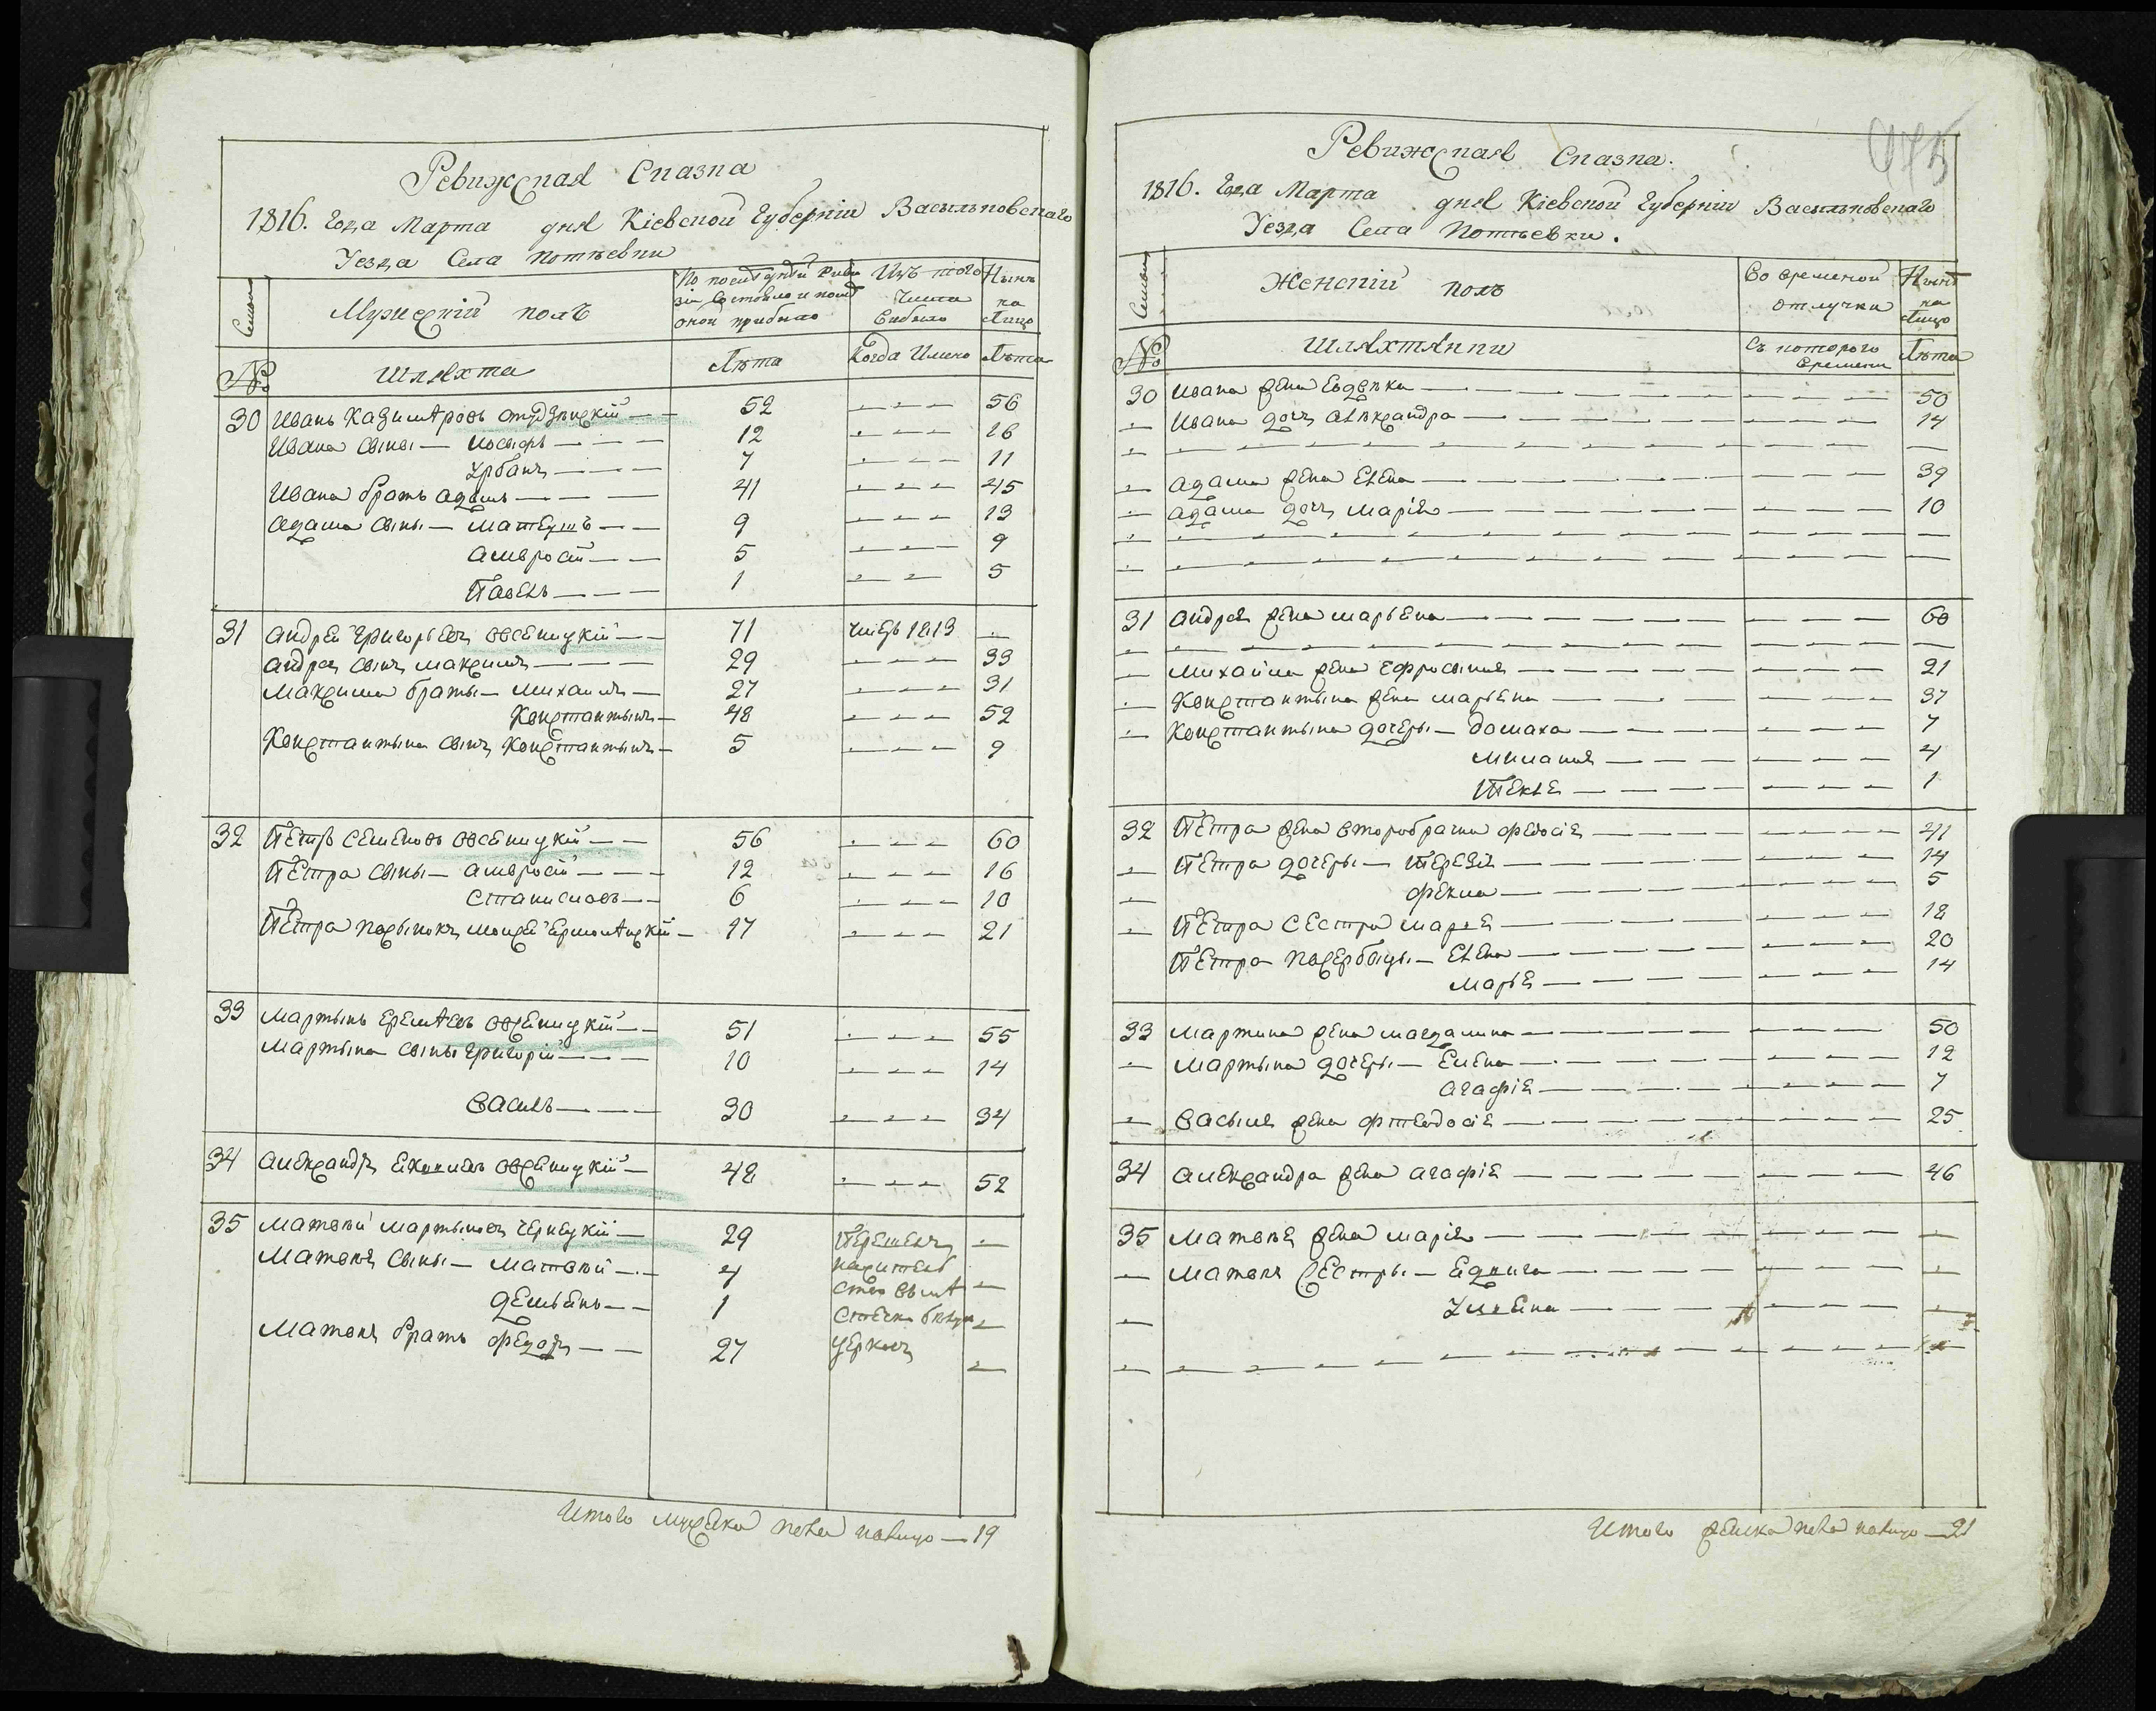 Ревижская Сказка
1816. Года Марта дня Кіевской Губерніи Васильковскаго
Уезда Села Потѣевки
Семьи Мужескій полъ По последней Реви Изъ того Нынѣ
зіи Состояло и посл числа на
оной прибыло выбыло Лицо
№ Шляхта Лѣта Когда Имено Лѣта
30 Иванъ Казимѣровъ 52 — — — 56
Ивана сыны — Иосыфъ — — — 12 — — — 16
Урбанъ — — — 7 — — — 11
Ивана братъ адамъ — — — 41 — — — 45
адама сыны — Матеушъ — — 9 — — — 13
амвросій — — 5 — — — 9
Павелъ — — — 1 — — — 5
31 андрей Григорьевъ овсеницкій — — 71 1813 —
андрея сынъ максимъ — — — 29 — — — 33
Максима браты — михаилъ — 27 — — — 31
Константынъ — 48 — — — 52
Константына сынъ Константынъ — 5 — — — 9
32 Петръ Семеновъ овсеницкій — — 56 — — — 60
Петра сыны — амвросій — — — 12 — — — 16
Станиславъ — — 6 — — — 10
Петра пасынокъ моисей — 17 — — — 21
33 Мартынъ еремѣевъ овсеницкій — — 51 — — — 55
Мартына сыны григорій — — — 10 — — — 14
Василь — — — 30 — — — 34
34 александръ овсеницкій — 48 — — — 52
35 матвѣй мартыновъ чернецкій — 29 Перешелъ —
Матвѣя сыны — матвѣй — — 4 на
демьянъ — — 1
Матвѣя братъ федоръ — — 27 церковъ —
Итого мужска пола налицо — 19
975
Ревижская Сказка.
1816. Года Марта дня Кіевской Губерніи Васильковскаго
Уезда Села Потѣевки.
Семьи Женскій полъ Во временой Нынѣ
отлучки на
Лицо
№ Шляхтянки Съ которого Лѣта
времени
30 Ивана жена Евдокка — — — 50
— Ивана дочь александра — — — 14
— — — —
— адама жена Елена — — — 39
— адама дочь марія — — — 10
— — — —
— — — —
31 андрея жена марьена — — — 60
— — — —
— Михайла жена ефросыния — — — 21
— Константына жена марьена — — — 37
— Константына дочеры — домаха — — — 7
миланія — — — 4
Текля — — — 1
32 Петра жена второбрачна федосія — — — 41
— Петра дочеры — Терезія — — — 14
— фекла — — — 5
— Петра сестра марья — — — 18
Петра пасербицы — Елена — — — 20
марья — — — 14
33 мартина жена магдалина — — — 50
— мартына дочеры — Елена — — — 12
агафія — — — 7
— Васыля жена фтеодосія — — — 25
34 александра жена агафія — — — 46
35 матвѣя жена марія — — — —
— матвѣя сестры — — — —
— — — —
— — — —
Итого женска пола налицо — 21